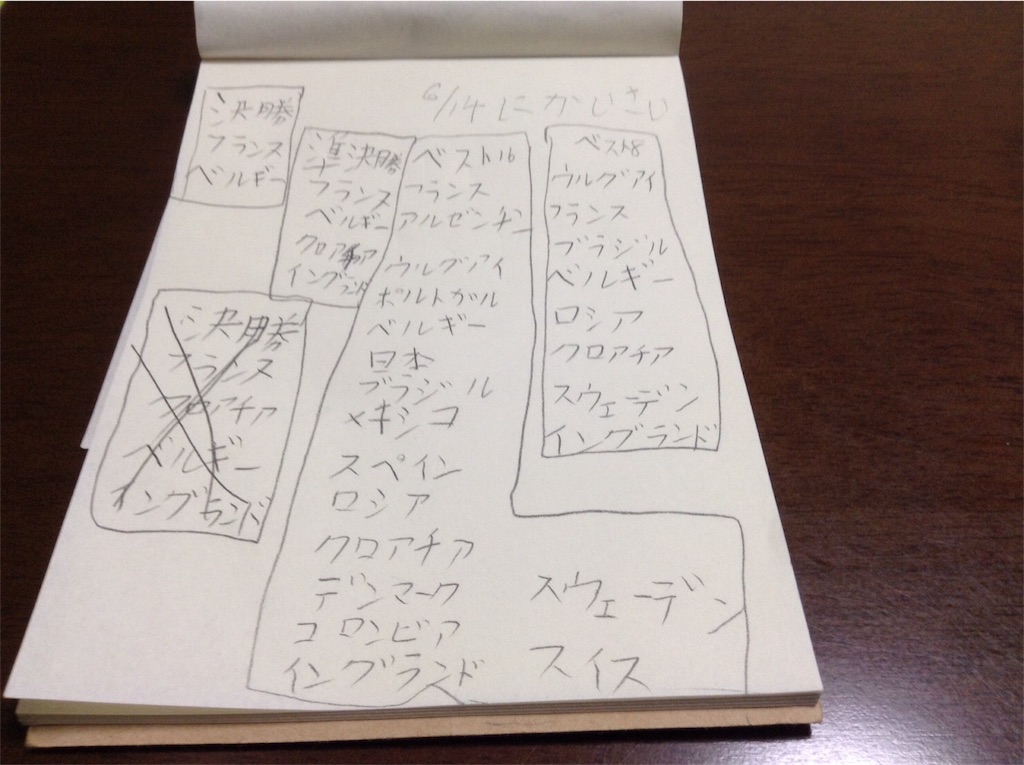 6/14にかいさい
決勝
フランス
ベルギー
準決勝
フランス
ベルギー
クロアチア
イングランド
ベスト16
フランス
アルゼンチン
ウルグアイ
ポルトガル
ベルギー
日本
ブラジル
メキシコ
スペイン
ロシア
クロアチア
デンマーク
コロンビア
イングランド
スウェーデン
スイス
ベスト8
ウルグアイ
フランス
ブラジル
ベルギー
ロシア
クロアチア
スウェーデン
イングランド
決勝
フランス
クロアチア
ベルギー
イングランド